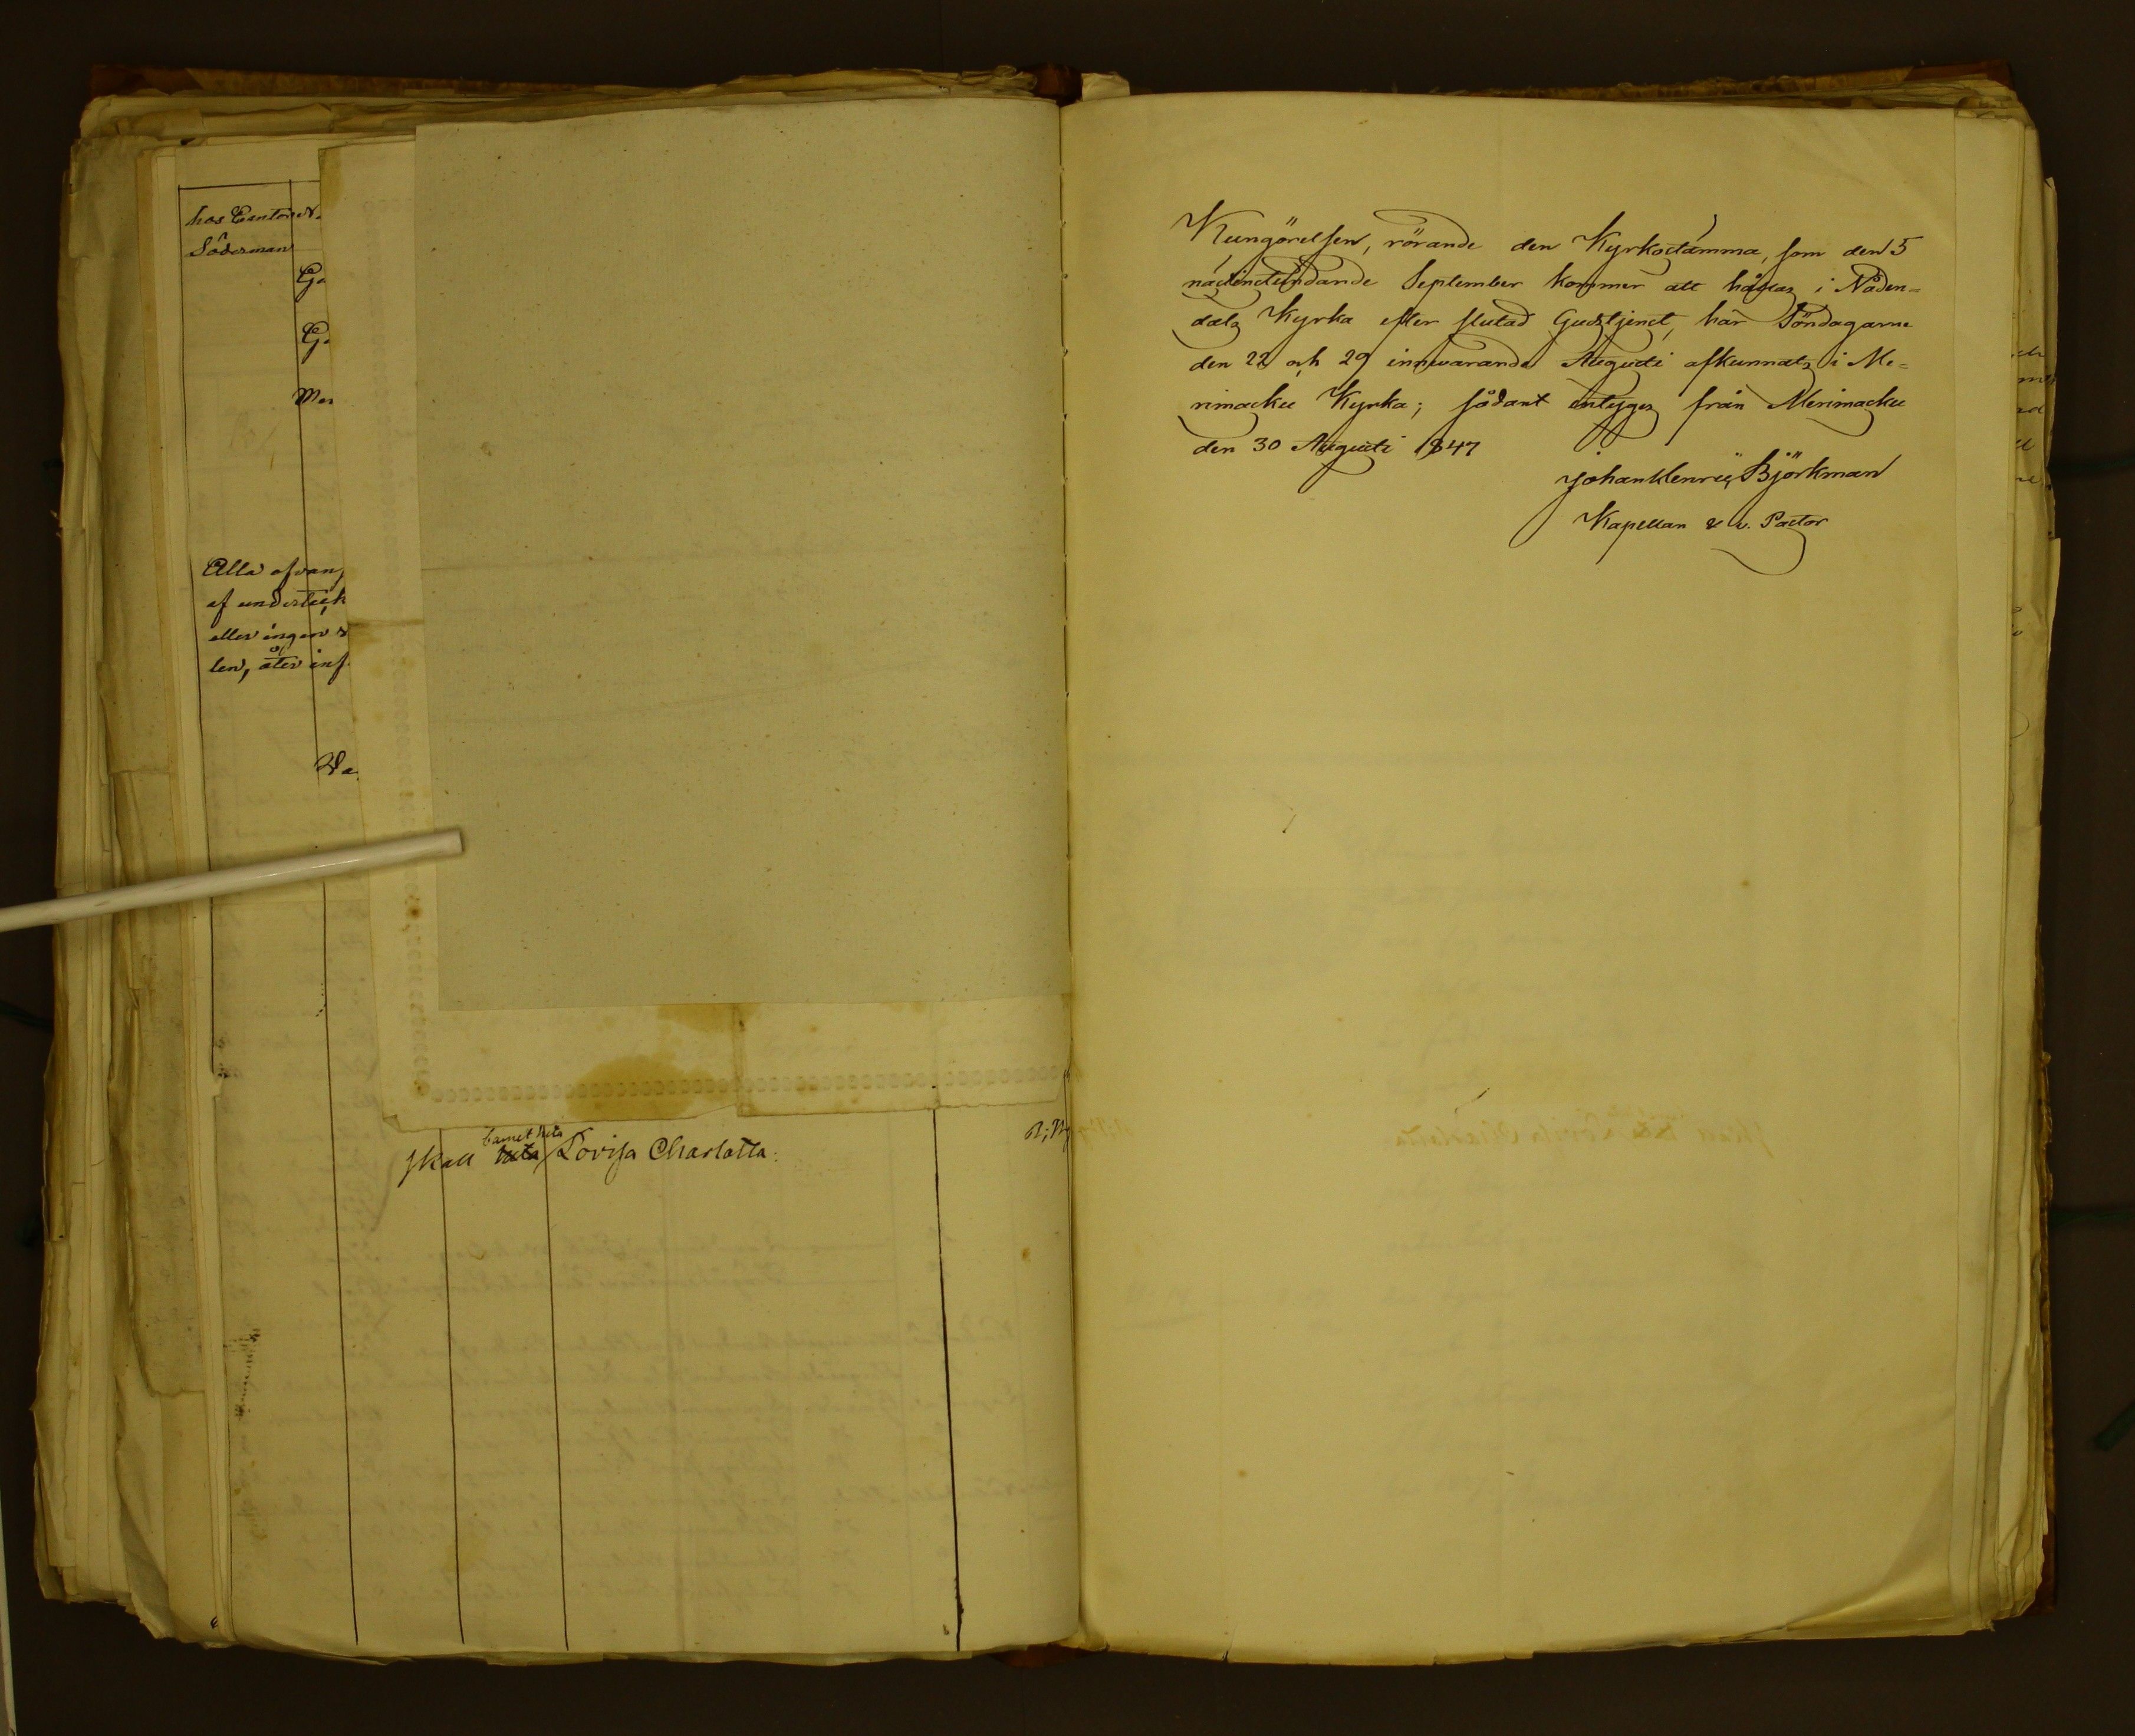 hos Cantor N.
Söderman
Ga
Ga
Mar
Alla ofvan
af underteck
eller ingen
len, åter inf
Wa
barnet heta
skall heta Lovisa Charlotta.
Kungörelsen, rörande den Kyrkostämma, som den 5
nästinstundande September kommer att hållas i Nåden=
dals Kyrka efter slutad Gudstjenst, har Söndagarne
den 22 och 29 innevarande Augusti afkunnats i Me=
rimasku Kyrka; sådant intygas från Merimasku
den 30 Augusti 1847
Johan Henric Björkman
Kapellan & v. Pastor